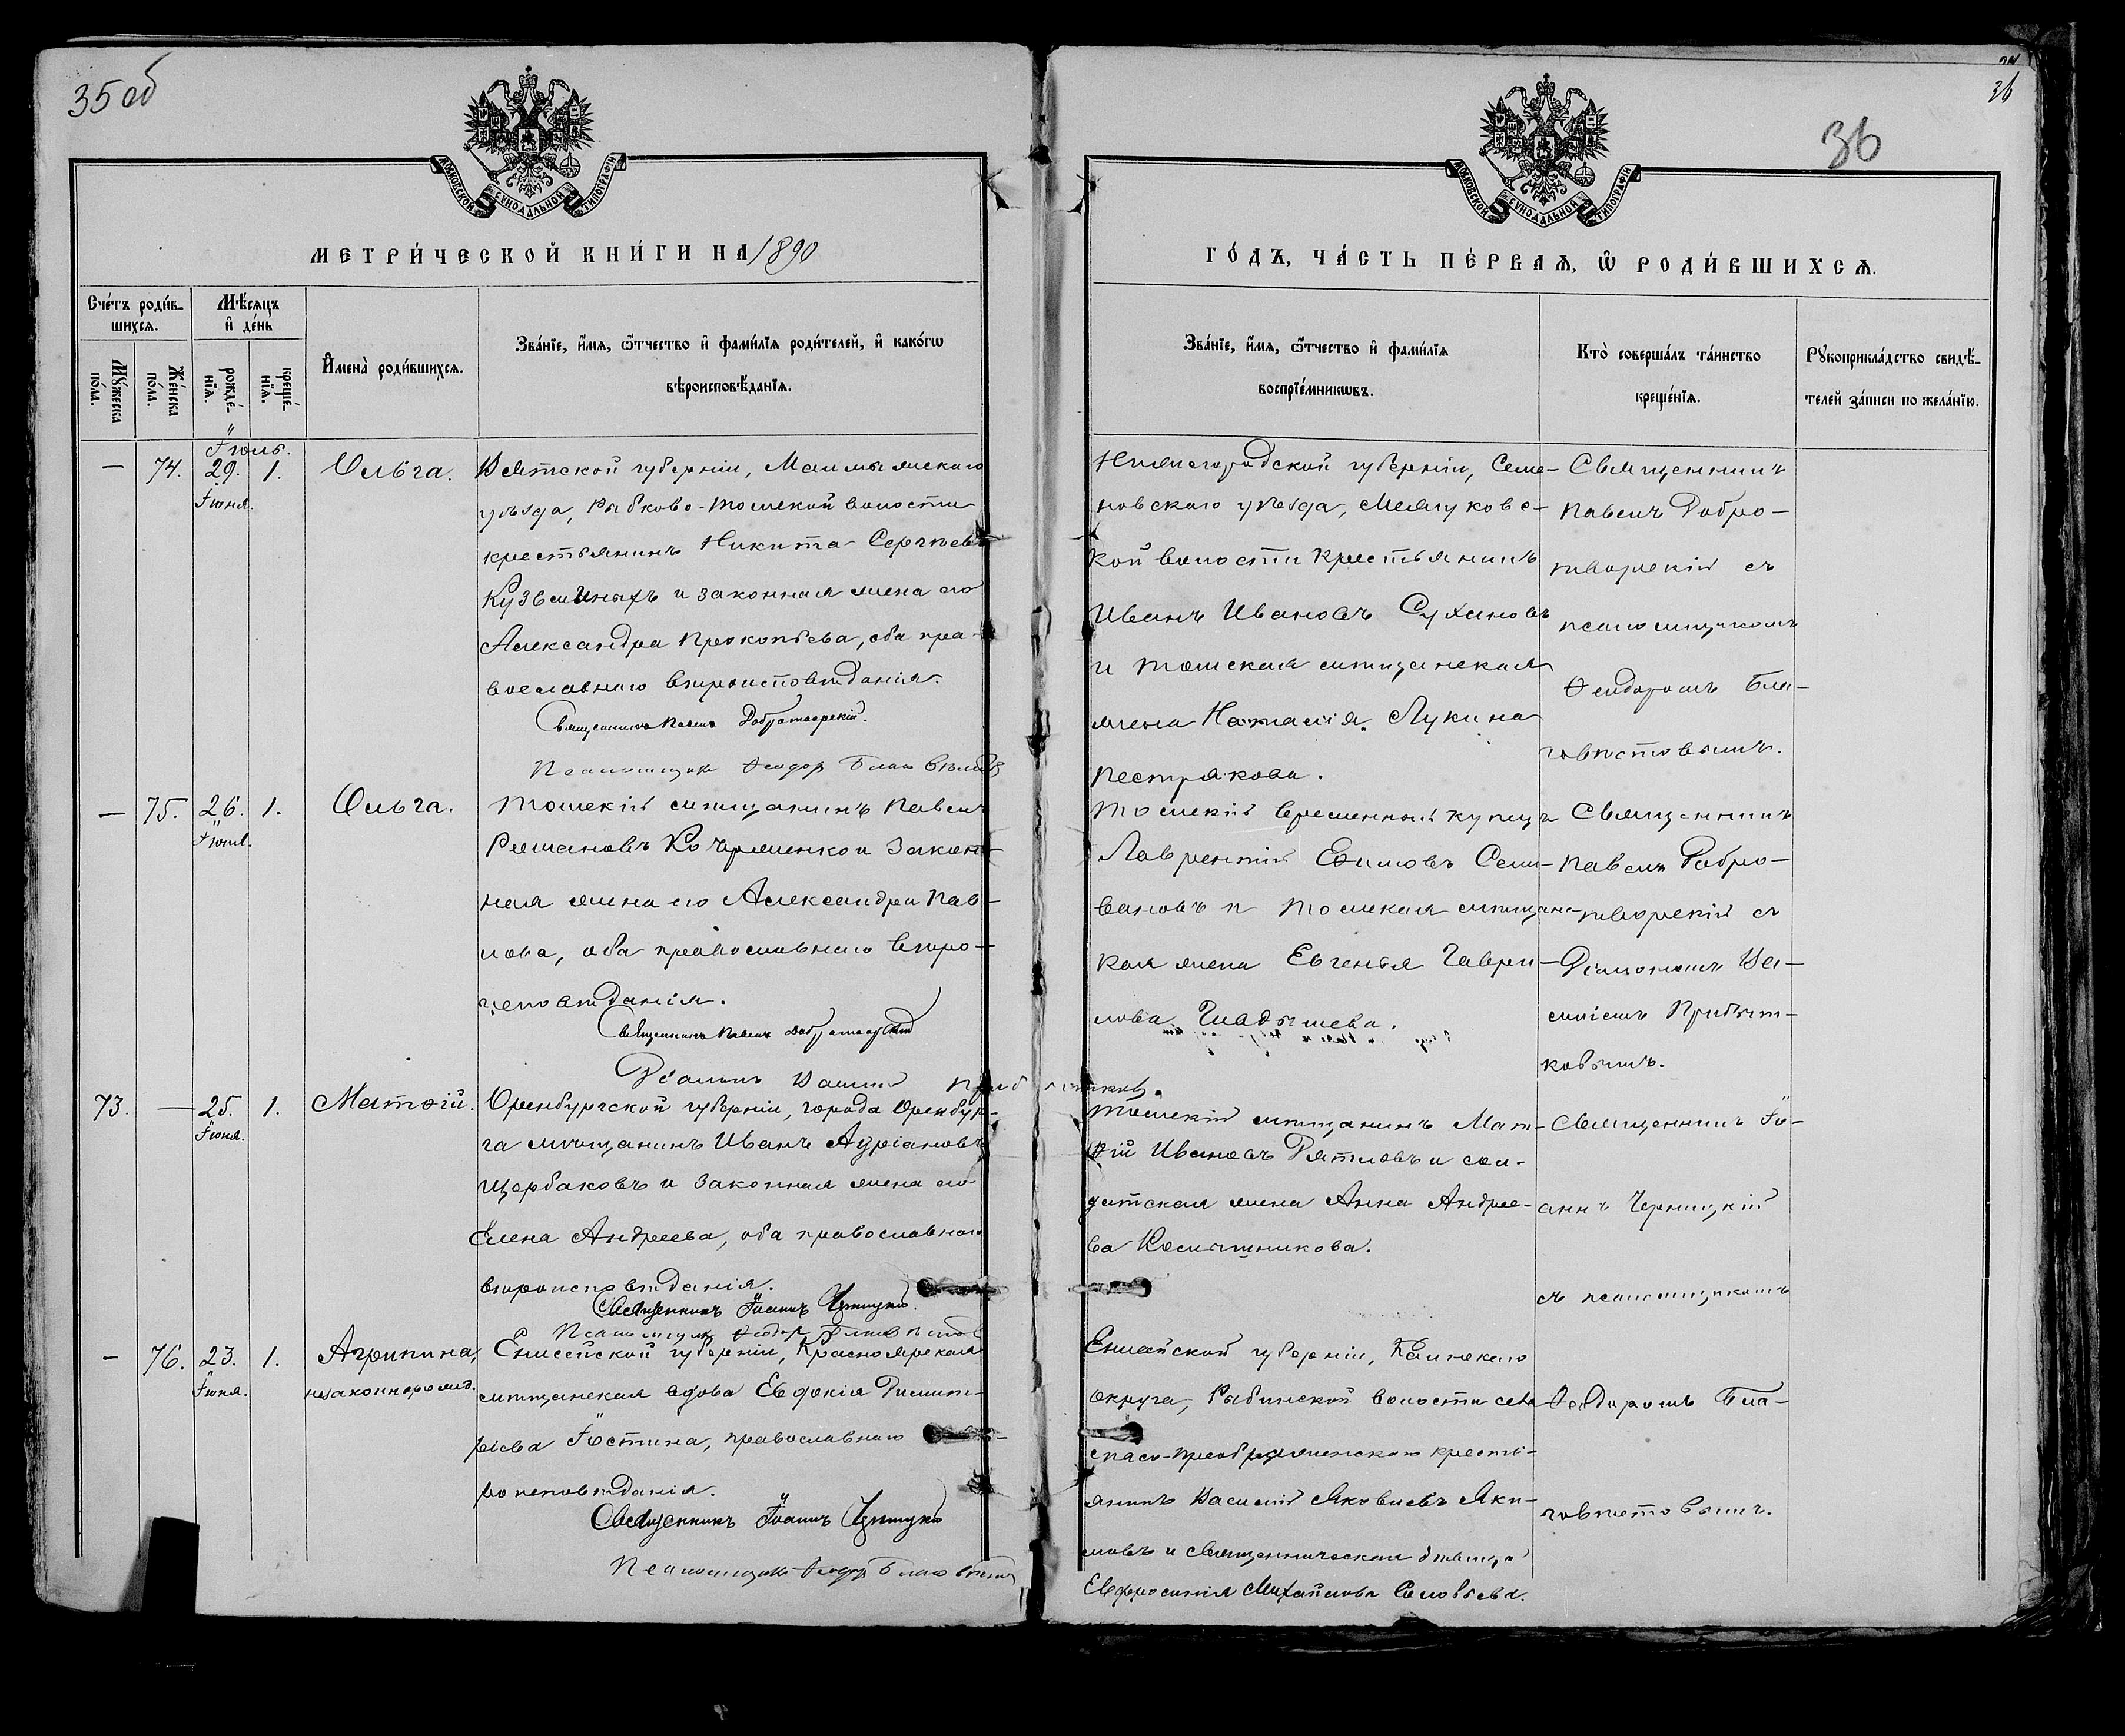 35 об
МОСКОВСКОЙ СѴНОДАЛЬНОЙ ТИПОГРАФІИ
МЕТРИ́ЧЕСКОЙ КНИ́ГИ НА 1890
Сче́тъ роди́в-
шихся.
Мѣ́сяцъ
и҆ де́нь
И҆мена̀ роди́вшихся.
Зва́нїе, и҆́мя, ѻ҆́тчество и҆ фами́лїя роди́телей, и҆ како́гѡ
вѣроисповѣ́данїя.
Мꙋ́жеска
по́ла.
Же́нска
по́ла.
рожде́-
нїя.
креще́-
нїя.
Іюль.
— 74. 29. 1. Ольга.
Іюня.
Вятской губерніи, Малмыжскаго
уѣзда, Рыбково-Томской волости
крестьянинъ Никита Сергѣевъ
Кузьминыхъ и законная жена его
Александра Прокопьева, оба пра-
вославнаго вѣроисповѣданія.
Священникъ Павелъ Добротворскій.
Псаломщикъ Ѳеодоръ Благовѣстовъ
— 75. 26. 1. Ольга.
Іюня.
Томскій мѣщанинъ Павелъ
Романовъ и закон-
ная жена его Александра Пав-
лова, оба православнаго вѣро-
исповѣданія.
Священникъ Павелъ Добротворскій
Діаконъ Василій Прибытковъ.
73. — 25. 1. Матѳій.
Іюня.
Оренбургской губерніи, города Оренбур-
га мѣщанинъ Иванъ Адріановъ
Щербаковъ и законная жена его
Елена Андреева, оба православнаго
вѣроисповѣданія.
Священникъ Іоаннъ Черницкій.
Псаломщикъ Ѳеодоръ Благовѣстовъ
— 76. 23. 1. Агрипина,
Іюня. незаконнорожд.
Енисейской губерніи, Красноярская
мѣщанская вдова Евдокія Димит-
ріева Іостина, православнаго
вѣроисповѣданія.
Священникъ Іоаннъ Черницкій
Псаломщикъ Ѳеодоръ Благовѣстовъ
36
36
МОСКОВСКОЙ СѴНОДАЛЬНОЙ ТИПОГРАФІИ
ГО́ДЪ, ЧА́СТЬ ПЕ́РВАЯ, Ѡ҆ РОДИ́ВШИХСЯ.
Зва́нїе, и҆́мя, ѻ҆́тчество и҆ фами́лїя
воспрїе́мникѡвъ.
Кто̀ соверша́лъ та́инство
креще́нїя.
Рꙋкоприкла́дство свидѣ́-
телей за́писи по жела́нїю.
Нижегородской губерніи, Семе-
новскаго уѣзда,
кой волости крестьянинъ
Иванъ Ивановъ Сухановъ
и томская мѣщанская
жена Наталія Лукина
Пестрякова.
Священникъ
Павелъ Добро-
творскій съ
псаломщикомъ
Ѳеодоромъ Бла-
говѣстовымъ.
Томскій временный купецъ
Лаврентій Ефимовъ Сели-
вановъ и томская мѣщанс-
кая жена Евгенья Гаври-
лова Гладышева.
Священникъ
Павелъ Добро-
творскій съ
Діакономъ Ва-
силіемъ Прибыт-
ковымъ.
Томскій мѣщанинъ Мат-
ѳій Ивановъ Дятловъ и сол-
датская жена Анна Андрее-
ва
Священникъ Іо-
аннъ Черницкій
съ псаломщикомъ
Ѳеодоромъ Бла-
говѣстовымъ.
Енисейской губерніи, Канскаго
округа, Рыбинской волости села
Спасо-Преображенскаго кресть-
янинъ Василій Яковлевъ Яки-
мовъ и священническая дѣвица
Евфросинія Михайлова Соловьева.